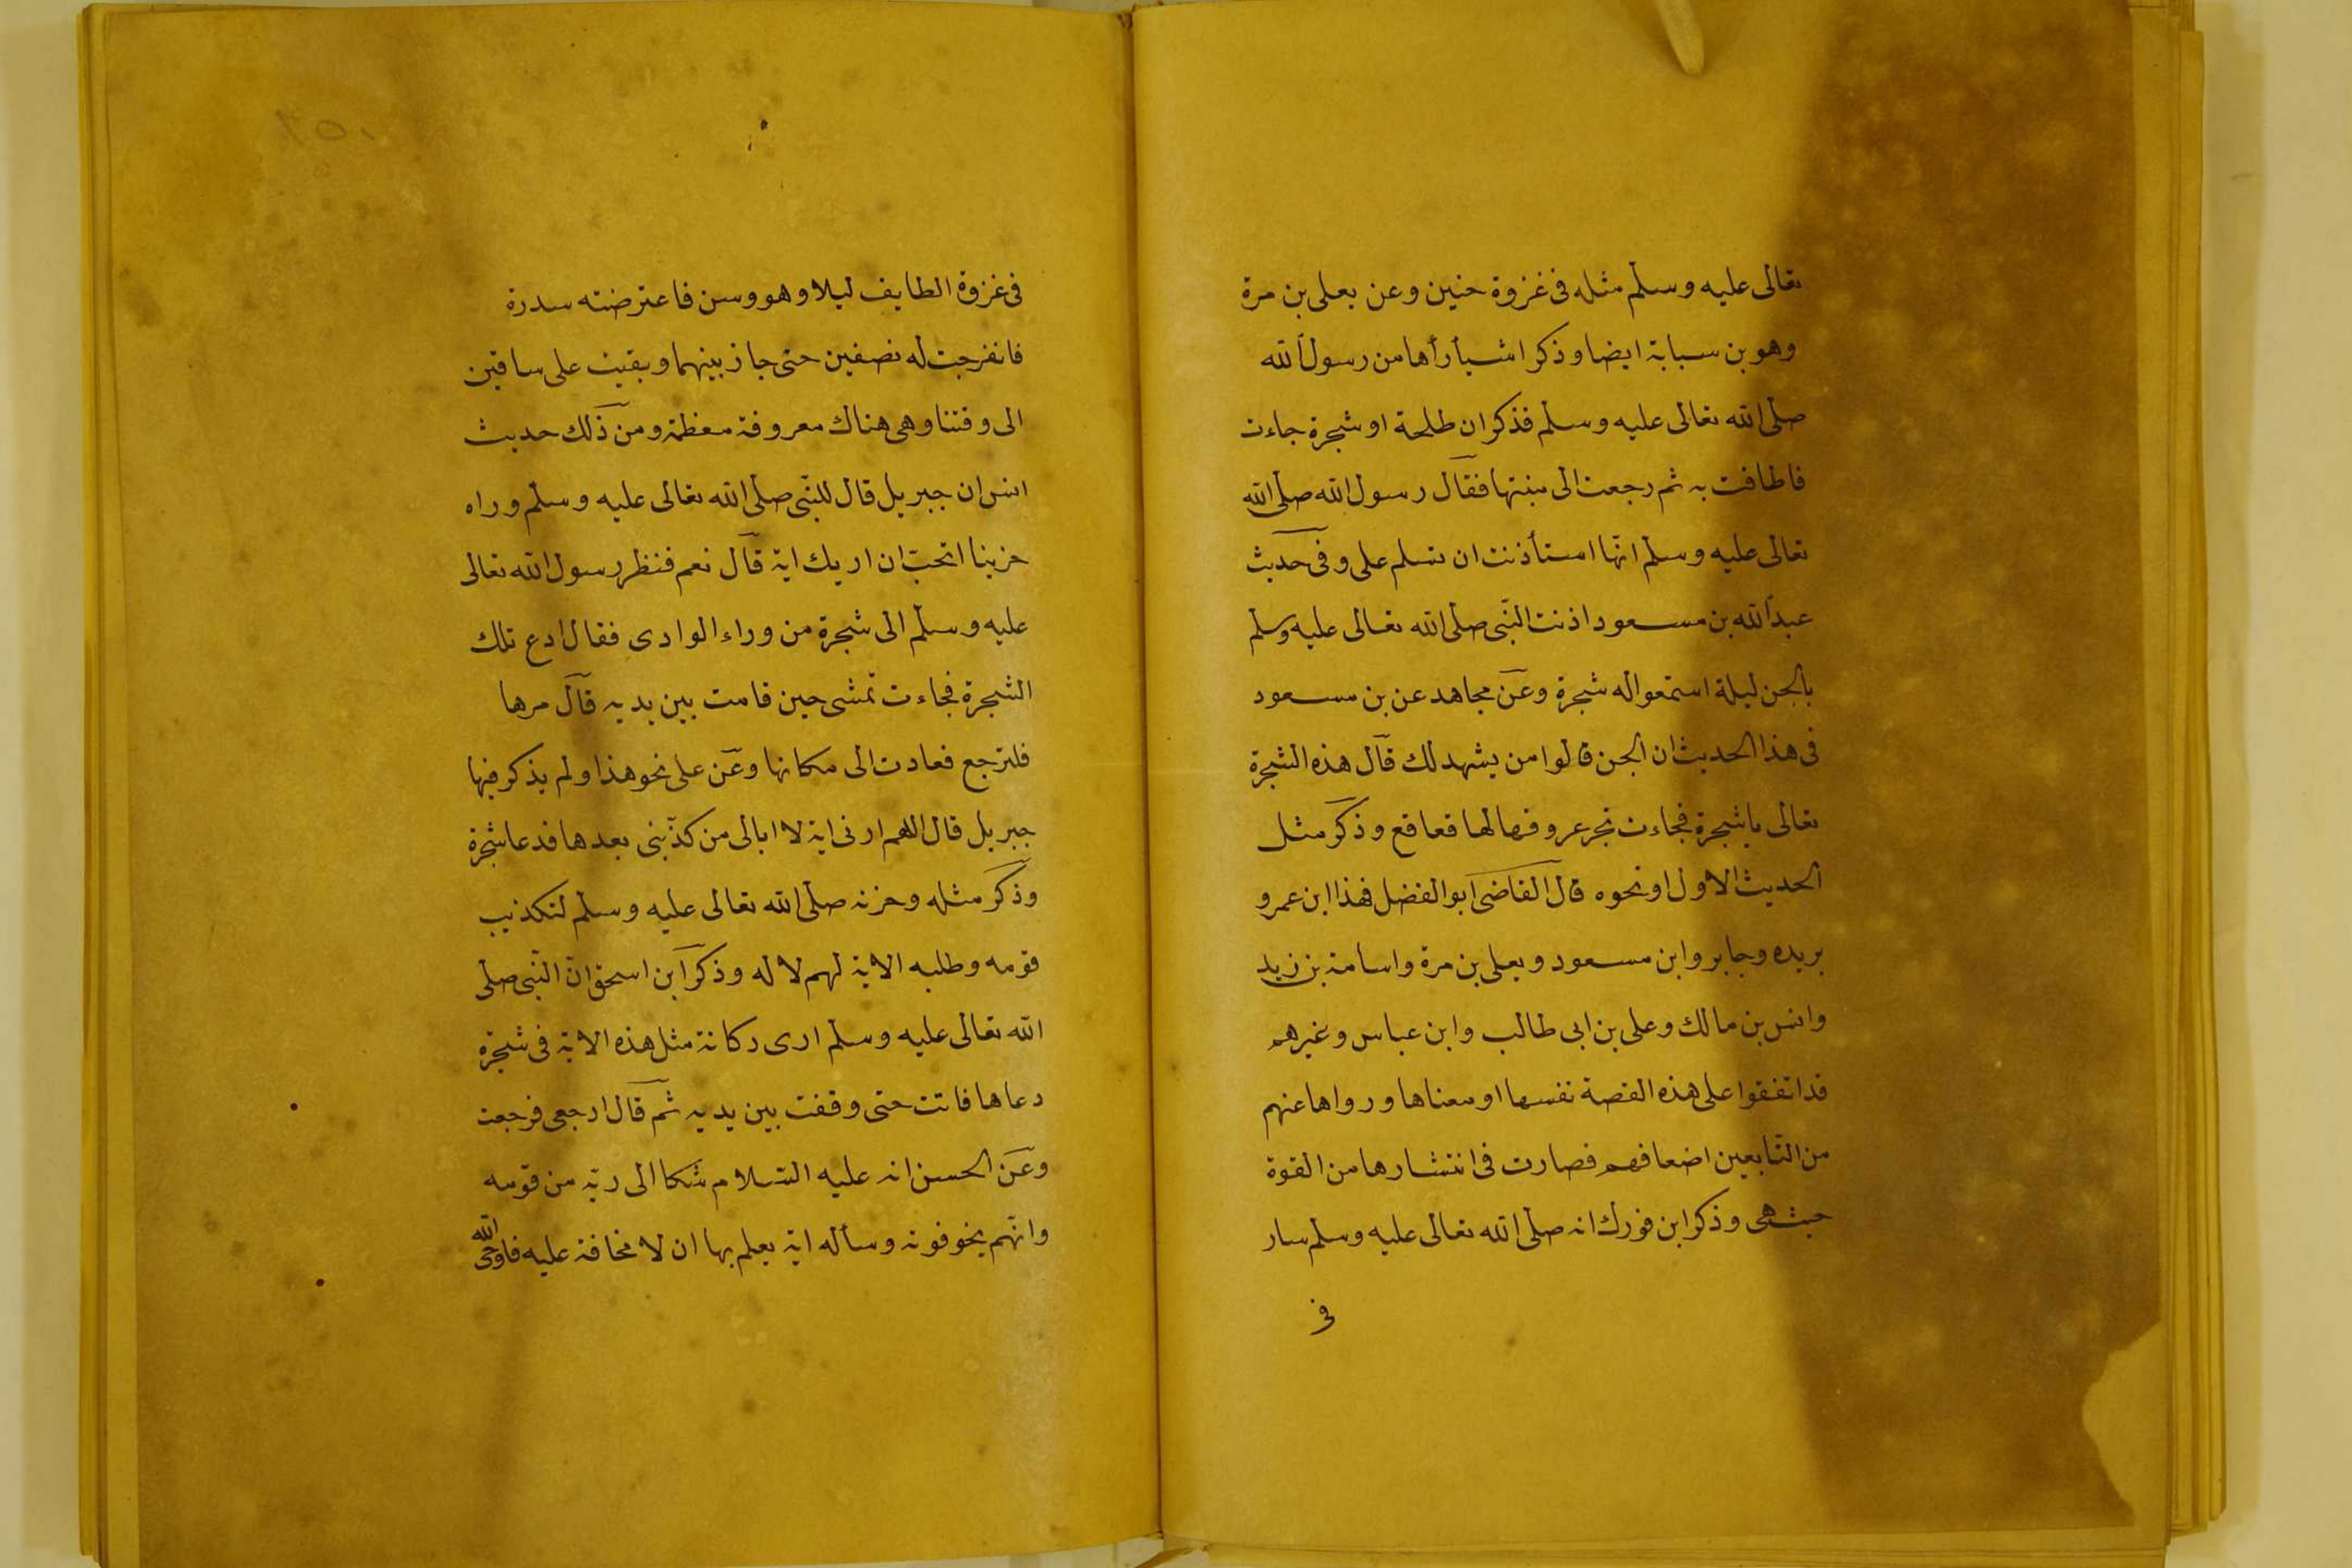 تعالى عليه وسلم مثله فى غزوة حنين وعن يعلى بن مرة
وهو بن سبابة ايضا وذكر اشيأ رأها من رسول الله
صلى الله تعالى عليه وسلم فذكر ان طلحة او شجرة جاءت
فاطافت به ثم رجعت الى منبتها فقال رسول الله صلى الله
تعالى عليه وسلم انها استأذنت ان تسلم على وفى حديث
عبد الله بن مسعود اذنت النبى صلى الله تعالى عليه وسلم
بالجن ليلة استمعوا له شجرة وعن مجاهد عن بن مسعود
فى هذا الحديث ان الجن قالوا من يشهد لك قال هذه الشجرة
تعالى يا شجرة فجاءت تجر عروقها لها قعاقع وذكر مثل
الحديث الاول او نحوه قال القاضى ابو الفضل فهذا ابن عمرو
بريده وجابر وابن مسعود ويعلى بن مرة واسامة بن زيد
وانس بن مالك وعلى بن ابى طالب وابن عباس وغيرهم
قد اتفقوا على هذه القصة نفسها او معناها ورواها عنهم
من التابعين اضعافهم فصارت فى انتشارها من القوة
حيث هى وذكر ابن فورك انه صلى الله تعالى عليه وسلم سار
فى
فى غزوة الطايف ليلا وهو وسن فاعترضته سدرة
فانفرجت له نصفين حتى جاز بينهما وبقيت على ساقين
الى وقتنا وهى هناك معروفة معظمة ومن ذلك حديث
انس ان جبريل قال للنبى صلى الله تعالى عليه وسلم وراه
حزينا اتحب ان اريك اية قال نعم فنظر رسول الله تعالى
عليه وسلم الى شجرة من وراء الوادى فقال ادع تلك
الشجرة فجاءت تمشى حين قامت بين يديه قال مرها
فلترجع فعادت الى مكانها وعن على نحو هذا ولم يذكر فيها
جبريل قال اللهم ارنى اية لا ابالى من كذبنى بعدها فدعا شجرة
وذكر مثله وحزنه صلى الله تعالى عليه وسلم لتكذيب
قومه وطلبه الاية لهم لا له وذكر ابن اسحق ان النبى صلى
الله تعالى عليه وسلم ارى ركانة مثل هذه الاية فى شجرة
دعاها فاتت حتى وقفت بين يديه ثم قال ارجعى فرجعت
وعن الحسن انه عليه السلام شكا الى ربه من قومه
وانهم يخوفونه وسأله اية يعلم بها ان لا مخافة عليه فاوحى الله